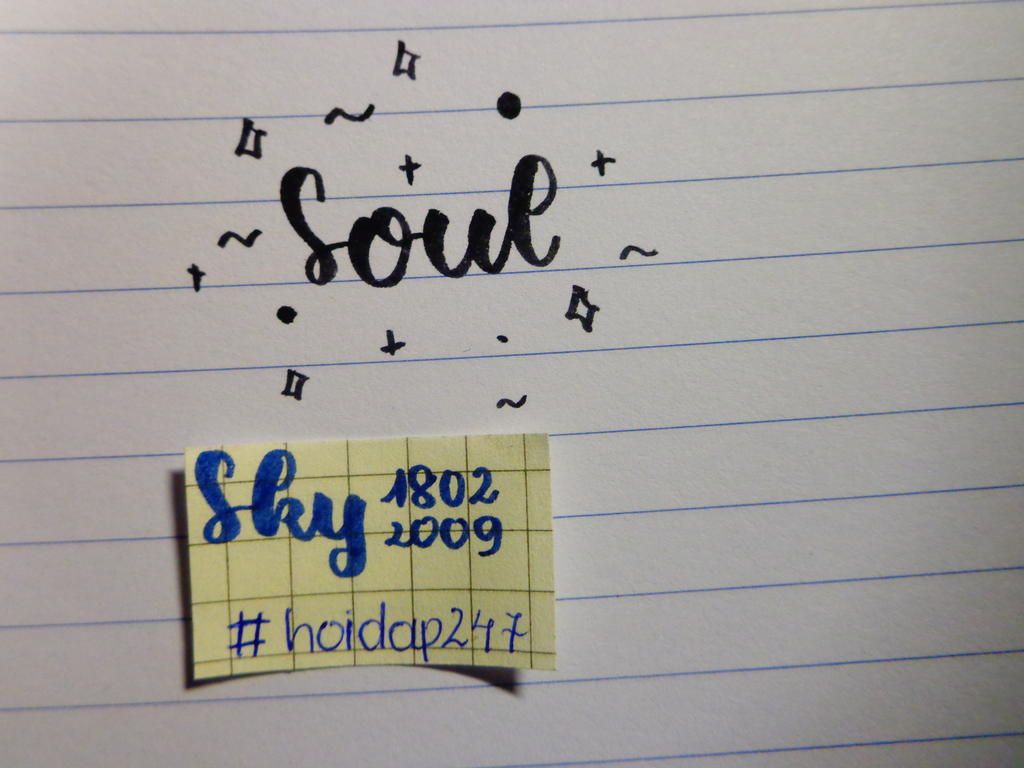 Soul
Sky 1802
2009
#hoidap247